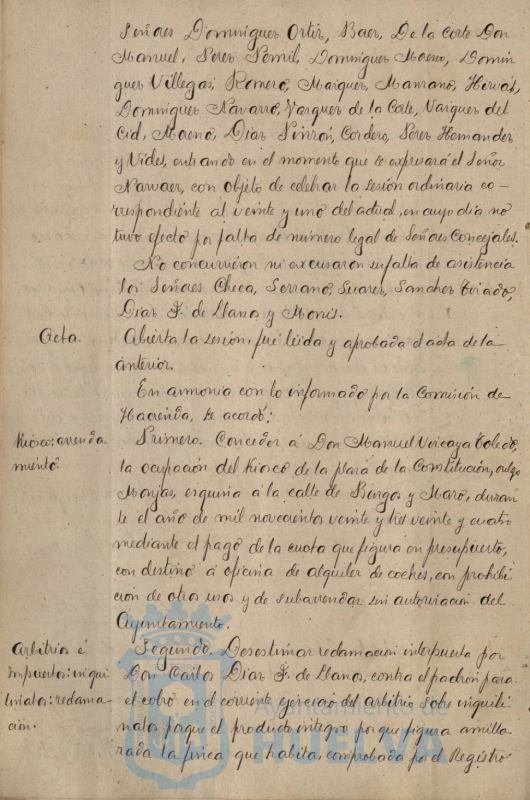 Señores Dominguez Ortiz, Baez, De la Corte Don
Manuel, Perez Pomil, Dominguez Moreno, Domin
guez Villegas, Romero, Maiquez, Manzano, Hervás,
Dominguez Navarro, Vazquez de la Corte, Vazquez del
Cid, Moreno, Diaz Pinzón, Cordero, Perez Hernandez
y Vides, entrando en el momento que se expresará el Señor
Narvaez, con objeto de celebrar la sesión ordinaria co-
rrespondiente al veinte y uno del actual, en cuyo dia no
tuvo efecto por falta de número legal de Señores Concejales.
No concurrieron ni excusaron su falta de asistencia
los Señores Checa, Serrano, Suarez, Sanchez
Diaz F. de Llanos y Monís.
Acta.
Abierta la sesión, fué leida y aprobada el acta de la
anterior.
En armonia con lo informado por la Comisión de
Hacienda, se acordó:
Kiosco: arrenda
miento.
Primero. Conceder á Don Manuel Vizcaya Toledo,
la ocupación del Kiosco de la plaza de la Constitución, vulgo
Monjas, esquina á la calle de Burgos y Mazo, duran
te el año de mil novecientos veinte y tres veinte y cuatro
mediante el pago de la cuota que figura en presupuesto,
con destino á oficina de alquiler de coches, con prohibi
ción de otros usos y de subarrendar sin autorización del
Ayuntamiento.
Arbitrios é
Impuestos: inqui
linatos: reclama-
ción.
Segundo. Desestimar reclamación interpuesta por
Don Carlos Diaz F. de Llanos, contra el padrón para
el cobro en el corriente ejercicio del arbitrio sobre inquili
natos porque el producto integro por que figura amilla
rada la finca que habita, comprobada por el Registro
Ayuntamiento de
HUELVA